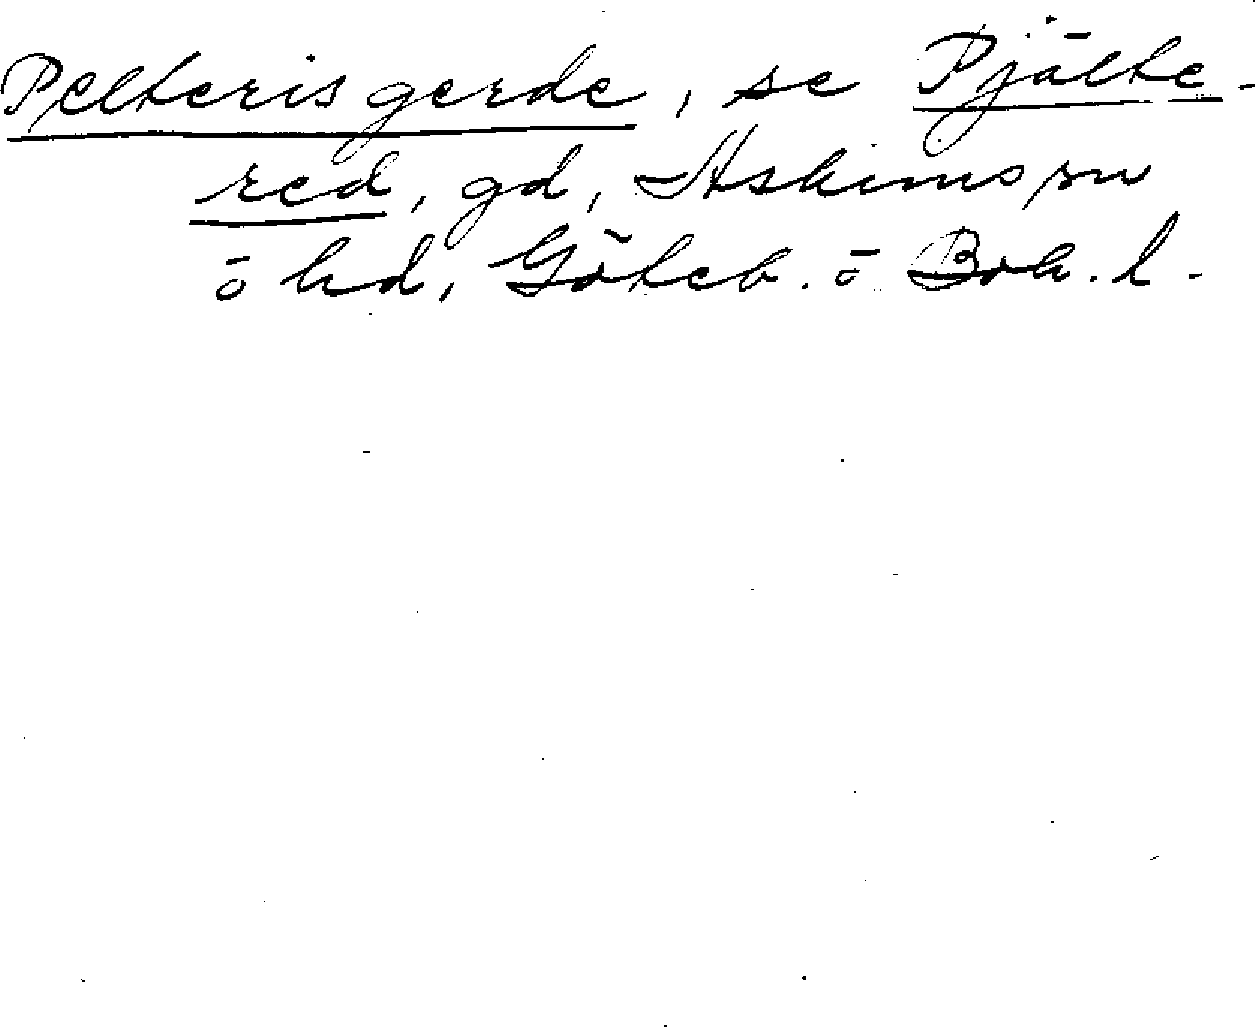 Pelterisgerde, se Pjälte-
red, gd, Askims sn
ö hd, Göteb. ö Boh. l.